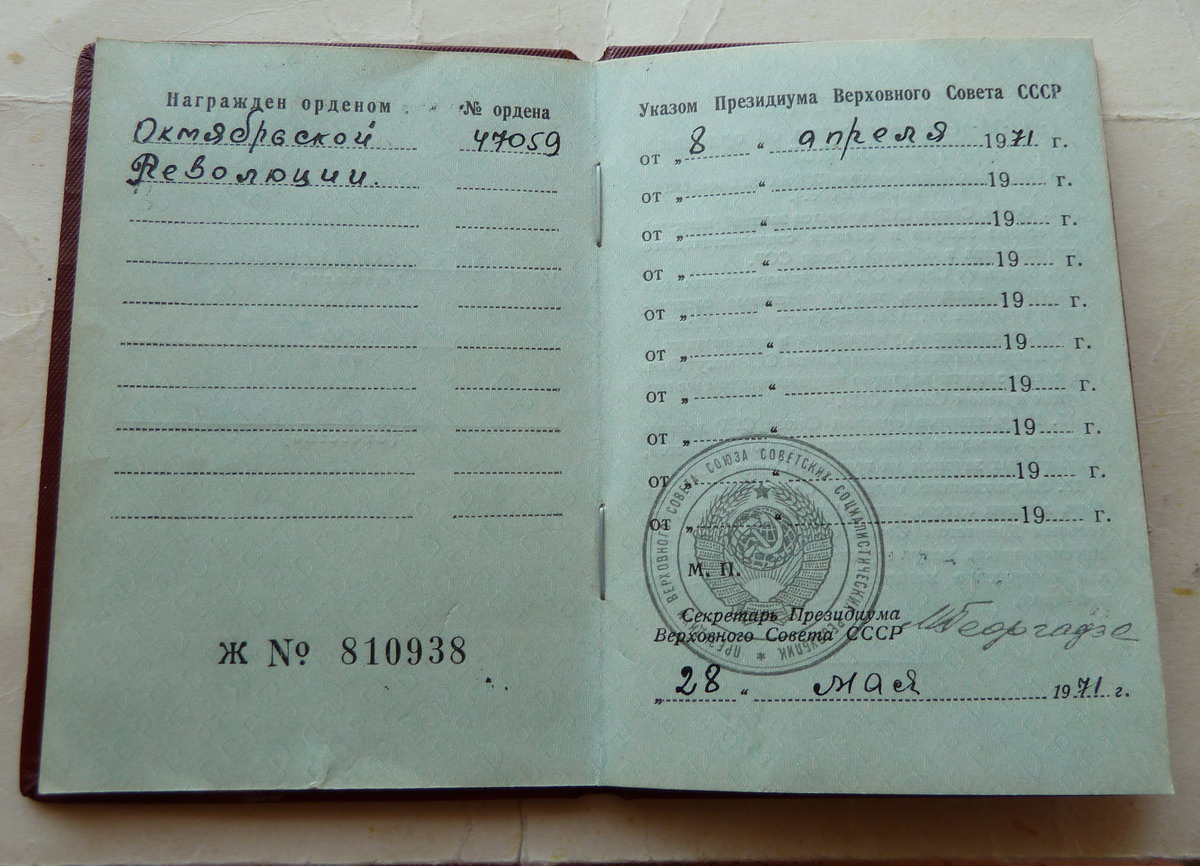 Награжден орденом
№ ордена
Октябрьской
47059
Революции.
Ж № 810938
Указом Президиума Верховного Совета СССР
от „ 8 “ апреля 1971 г.
от „ “ 19 г.
от „ “ 19 г.
от „ “ 19 г.
от „ “ 19 г.
от „ “ 19 г.
от „ “ 19 г.
от „ “ 19 г.
от „ “ 19 г.
от „ “ 19 г.
ПРЕЗИДИУМ ВЕРХОВНОГО СОВЕТА СОЮЗА СОВЕТСКИХ СОЦИАЛИСТИЧЕСКИХ РЕСПУБЛИК *
М. П.
Секретарь Президиума
Верховного Совета СССР
МГеоргадзе
„ 28 “ мая 1971 г.